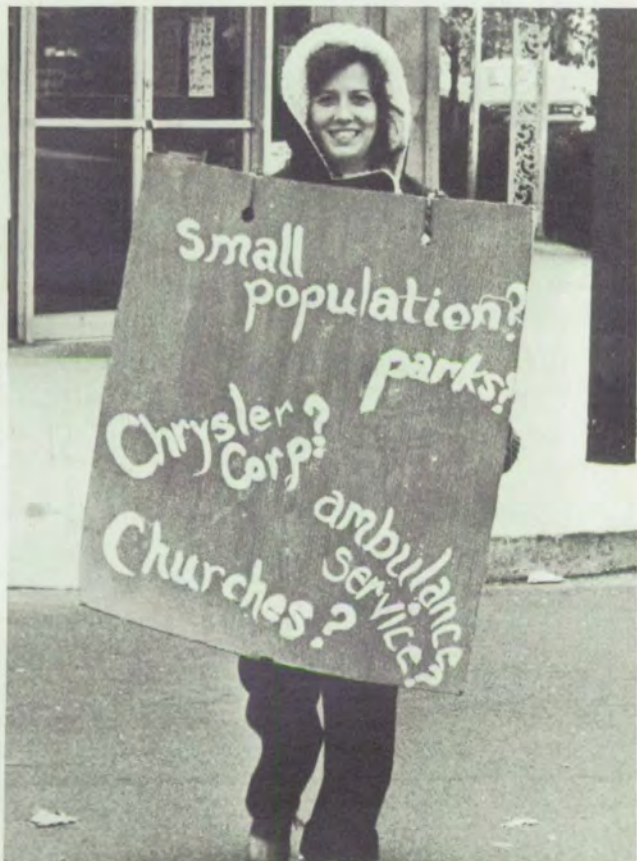 small
population?
parks?
Chrysler?
Corp?
ambulance
service?
Churches?